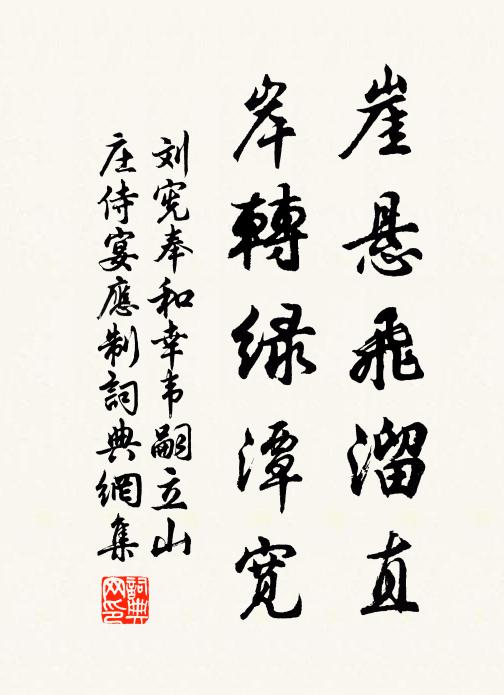 崖悬飛溜直
岸轉緑潭寬
刘宪奉和幸韦嗣立山
庄侍宴應制詞典網集
詞典
网印